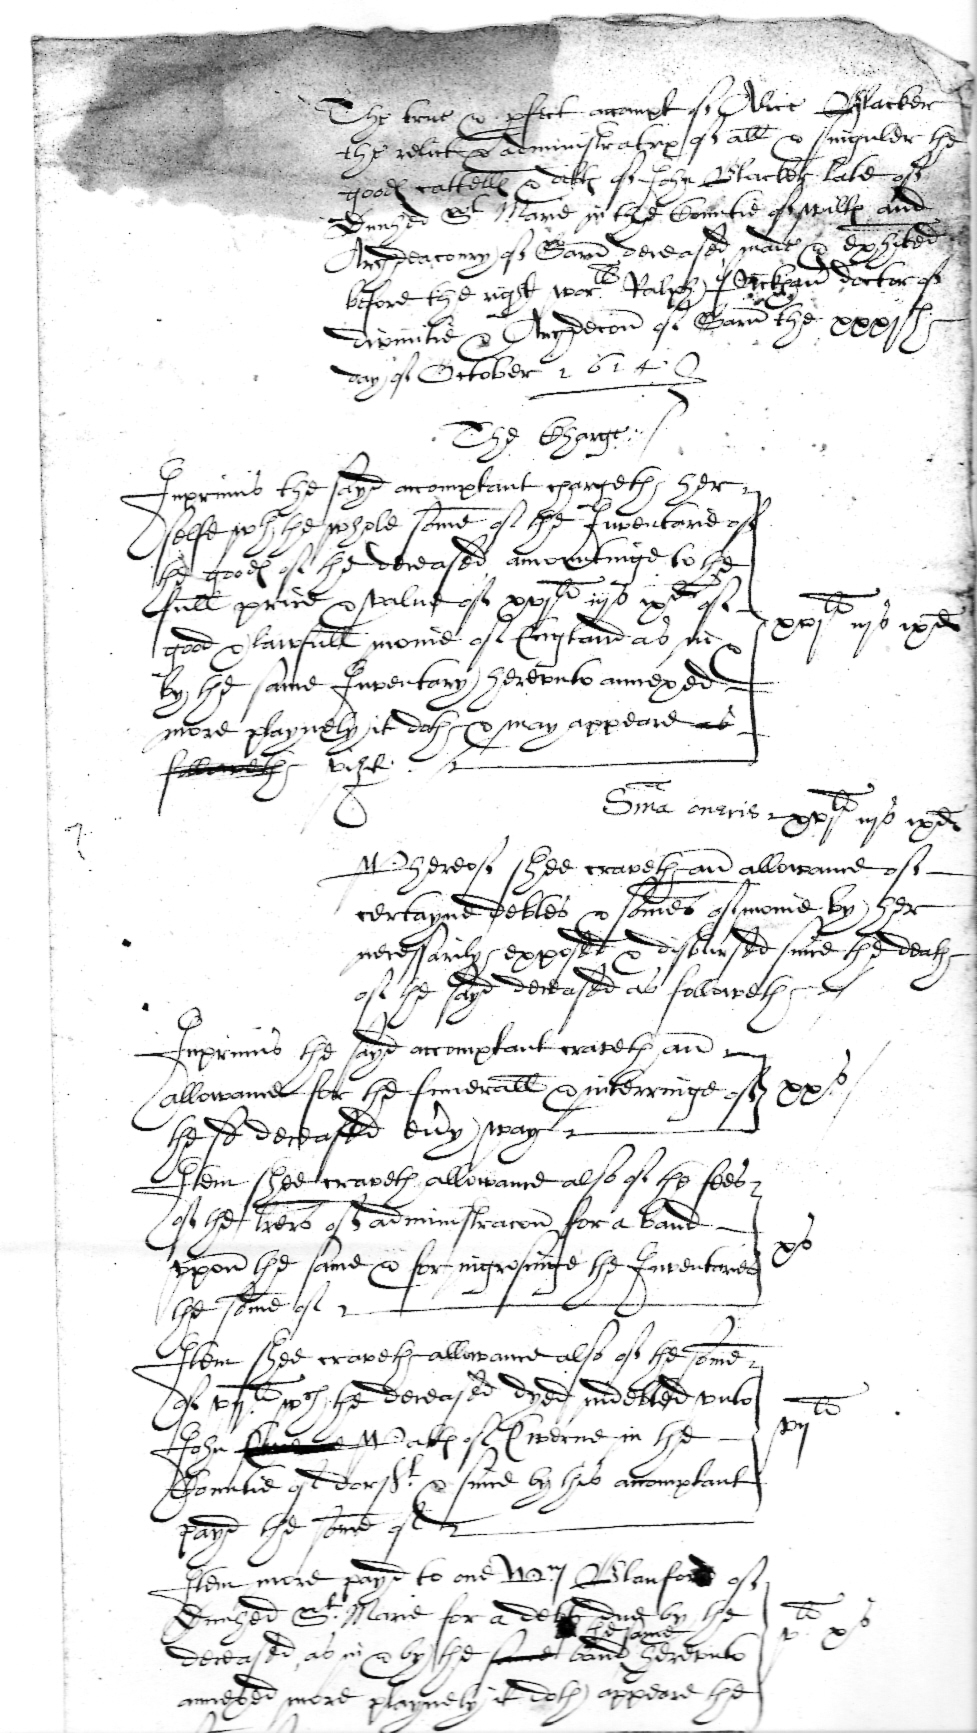 The true & pfect accompt of Alice Blacker
the relict & administratrix of all & singuler the
goods cattells & debts of John Blacker late of
Dunhed St Marie in the Countie of wiltes and
Archdeaconry of Sarū deceased made & exhited
before the right worll Ralph Pickovr̄ doctor of
divinitie & Archdecon of Sarū the xxxith
day of October 1614
The Charge
Inprimis the sayd accomptant chargeth her
selfe wth the whole some of the Inventarie of
the goods of the deceased amountinge to the
full price & value of xxili iijs ixd of
good & lawfull monie of England as in &
by the same Inventary herevnto annexed
more playnely it doth & may appeare as
followeth vizt
xxili iijs ixd
Sma oneris xxili iijs ixd
Whereof shee craveth an allowance of
certayne debtes & somes of monie by her
necessarily exposed & disbursed since the death
of the sayd deceased as followeth
Inprimis the sayd accomptant craveth an
allowance for the funerall & interringe of
the sd deceased eu'y way
xxs
Item shee craveth allowance also of the fees
of the lrēs of administracon for a band
vpon the same & for ingrosinge the Inventaries
the some of
xs
Item shee craveth allowance also of the some
of vijli wch the deceased dyed indebted vnto
John Watts of Ewerne in the
Countie of dorst & since by this accomptant
payd the some of
vijli
Item more payd to one Wm Blanford of
Dunhed St Marie for a debt due by the
deceased as in & by the same the same band herevnto
annexed more playnely it doth appeare the
vli xs